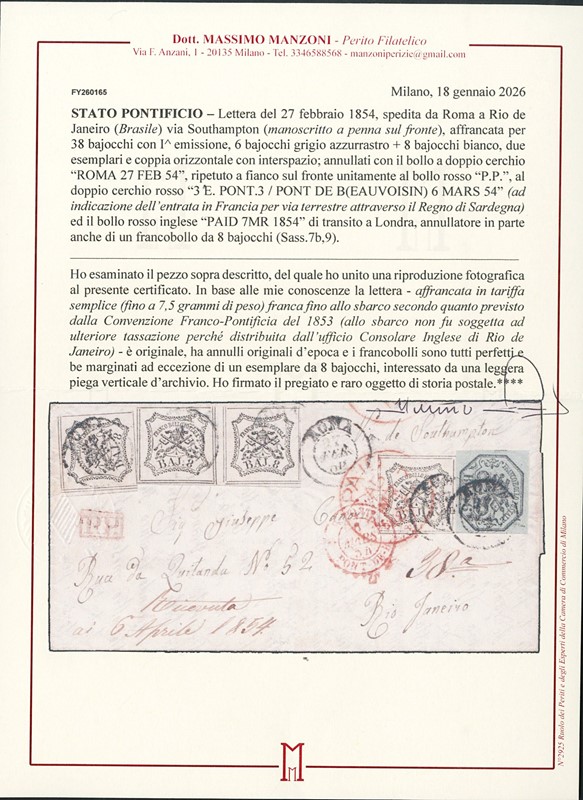 Dott. MASSIMO MANZONI - Perito Filatelico
Via F. Anzani, 1 - 20135 Milano - Tel. 3346588568 - manzoniperizie@gmail.com
FY260165
Milano, 18 gennaio 2026
STATO PONTIFICIO – Lettera del 27 febbraio 1854, spedita da Roma a Rio de
Janeiro (Brasile) via Southampton (manoscritto a penna sul fronte), affrancata per
38 bajocchi con I^ emissione, 6 bajocchi grigio azzurrastro + 8 bajocchi bianco, due
esemplari e coppia orizzontale con interspazio; annullati con il bollo a doppio cerchio
“ROMA 27 FEB 54”, ripetuto a fianco sul fronte unitamente al bollo rosso “P.P.”, al
doppio cerchio rosso “3 E. PONT.3 / PONT DE B(EAUVOISIN) 6 MARS 54” (ad
indicazione dell’entrata in Francia per via terrestre attraverso il Regno di Sardegna)
ed il bollo rosso inglese “PAID 7MR 1854” di transito a Londra, annullatore in parte
anche di un francobollo da 8 bajocchi (Sass.7b,9).
Ho esaminato il pezzo sopra descritto, del quale ho unito una riproduzione fotografica
al presente certificato. In base alle mie conoscenze la lettera - affrancata in tariffa
semplice (fino a 7,5 grammi di peso) franca fino allo sbarco secondo quanto previsto
dalla Convenzione Franco-Pontificia del 1853 (allo sbarco non fu soggetta ad
ulteriore tassazione perché distribuita dall’ufficio Consolare Inglese di Rio de
Janeiro) - è originale, ha annulli originali d’epoca e i francobolli sono tutti perfetti e
be marginati ad eccezione di un esemplare da 8 bajocchi, interessato da una leggera
piega verticale d’archivio. Ho firmato il pregiato e raro oggetto di storia postale.****
de Southampton
ROMA
BAJ.8
BAJ.8
BAJ.8
P.P.
Giuseppe
Rua da Quitanda Nº 52
38a
Rio Janeiro
Ricevuta
ai 6 Aprile 1854
N°2925 Ruolo dei Periti e degli Esperti della Camera di Commercio di Milano
M